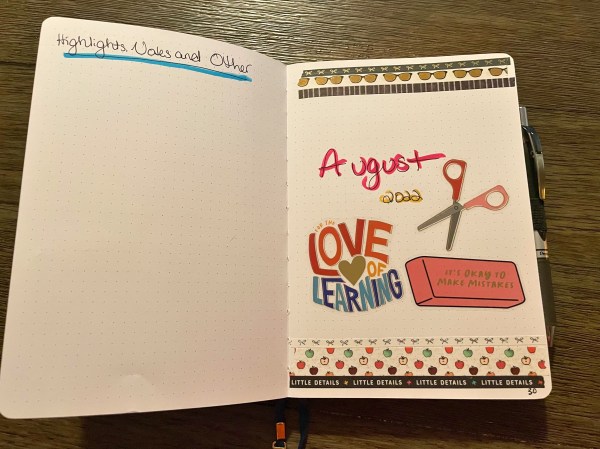 Highlights, Notes and Other
August
2022
FOR THE
LOVE
OF
LEARNING
IT'S OKAY TO
MAKE MISTAKES
LITTLE DETAILS LITTLE DETAILS LITTLE DETAILS LITTLE DETAILS
30